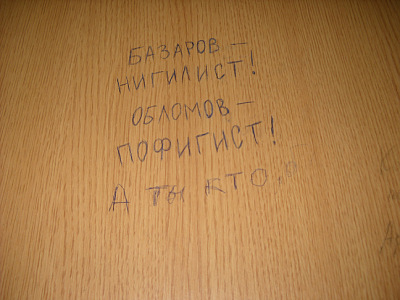 БАЗАРОВ –
НИГИЛИСТ!
ОБЛОМОВ –
ПОФИГИСТ!
А ТЫ КТО?